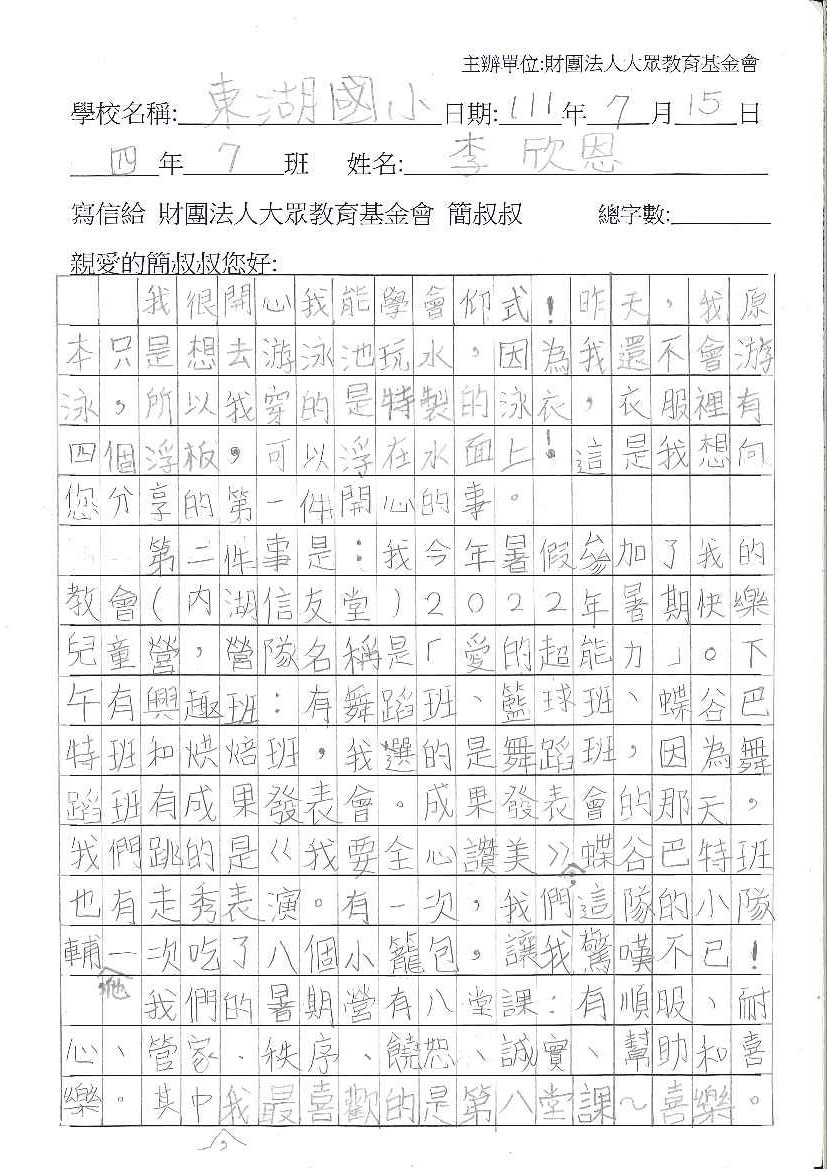 主辦單位:財團法人大眾教育基金會
學校名稱:東湖國小日期:111年7月15日
四年7班 姓名:李欣恩
寫信給 財團法人大眾教育基金會 簡叔叔 總字數:
親愛的簡叔叔您好:
我很開心我能學會仰式!昨天,我原
本只是想去游泳池玩水,因為我還不會游
泳,所以我穿的是特製的泳衣,衣服裡有
四個浮板,可以浮在水面上!這是我想向
您分享的第一件開心的事。
第二件事是:我今年暑假參加了我的
教會(內湖信友堂)2022年暑期快樂
兒童營,營隊名稱是「愛的超能力」。下
午有興趣班:有舞蹈班、籃球班、蝶谷巴
特班和烘焙班,我選的是舞蹈班,因為舞
蹈班有成果發表會。成果發表會的那天,
我們跳的是《我要全心讚美》,蝶谷巴特班
也有走秀表演。有一次,我們這隊的小隊
輔他一次吃了八個小籠包,讓我驚嘆不已!
我們的暑期營有八堂課:有順服、耐
心、管家、秩序、饒恕、誠實、幫助和喜
樂。其中,我最喜歡的是第八堂課~喜樂。